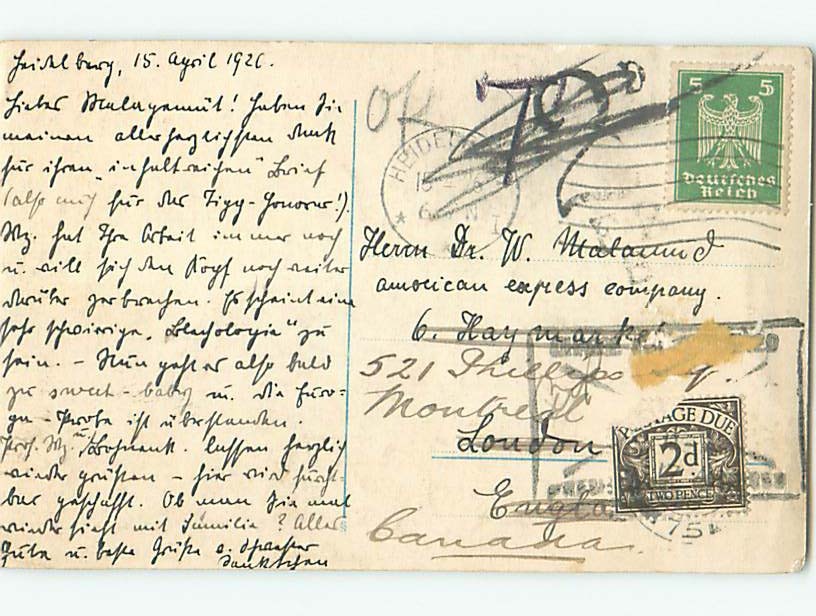 Heidelberg, 15. April 1926.
Liebes Malagemüt! Haben Sie
meinen allerherzlichsten Dank
für ihren „inhaltreichen" Brief
(also auch für das Tigg-Honorar!).
Wz. hat Ihre Arbeit immer noch
u. will sich den Kopf noch weiter
darüber zerbrechen. Es scheint eine
sehr schwierige „Blechologie" zu
sein. – Nun geht es also bald
zu sweet-baby u. die Euro=
pa-Probe ist überstanden.
Prof. Wz. u. lassen herzlich
wieder grüßen – hier wird furcht=
bar geschafft. Ob man Sie mal
wieder sieht mit Familie? Alles
Gute u. beste Grüße v. Schwester
OK
T
HEIDEL
5 5
Deutsches
Reich
Herrn Dr. W. Malamud
american express company.
6. Haymarket
521 Phillips Sq.
Montreal
London
England
Canada
POSTAGE DUE
2d
TWO PENCE